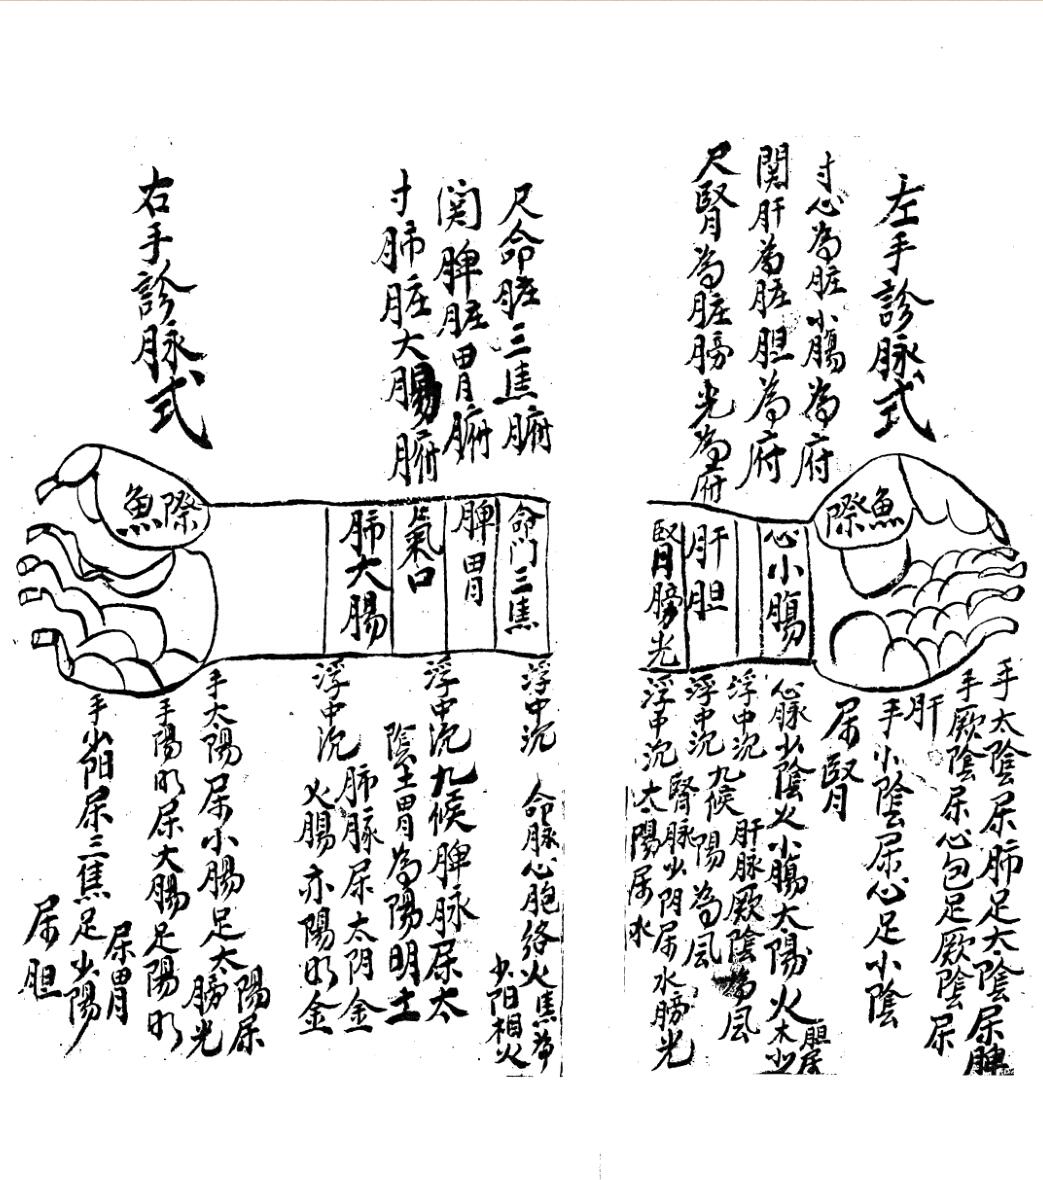 左手診脉式
寸心為脏小腸為府
関肝為脏胆為府
尺腎為脏膀光為府
魚際
心小腸
肝胆
腎膀光
手太陰屎肺足太陰屎脾
手厥陰屎心包足厥陰屎
肝
手小陰屎心足小陰
屎腎
心脉少陰火小腸太陽火
胆屎
木
浮中沉九候
肝脉厥陰為風
浮中沉
陽為風
浮中沉
腎脉少阴屎水膀光
太陽屎水
尺命脏三焦腑
関脾脏胃腑
寸肺脏大腸腑
右手診脉式
命门三焦
脾胃
氣口
肺大腸
魚際
浮中沉
命脉心胞絡火焦為
少阳相火
浮中沉九候脾脉屎太
陰土胃為陽明土
浮中沉
肺脉屎太阴金
大腸亦陽明金
手太陽屎小腸足太
陽屎
膀光
手陽明屎大腸足陽明
屎胃
手少阳屎三焦足少陽
屎胆